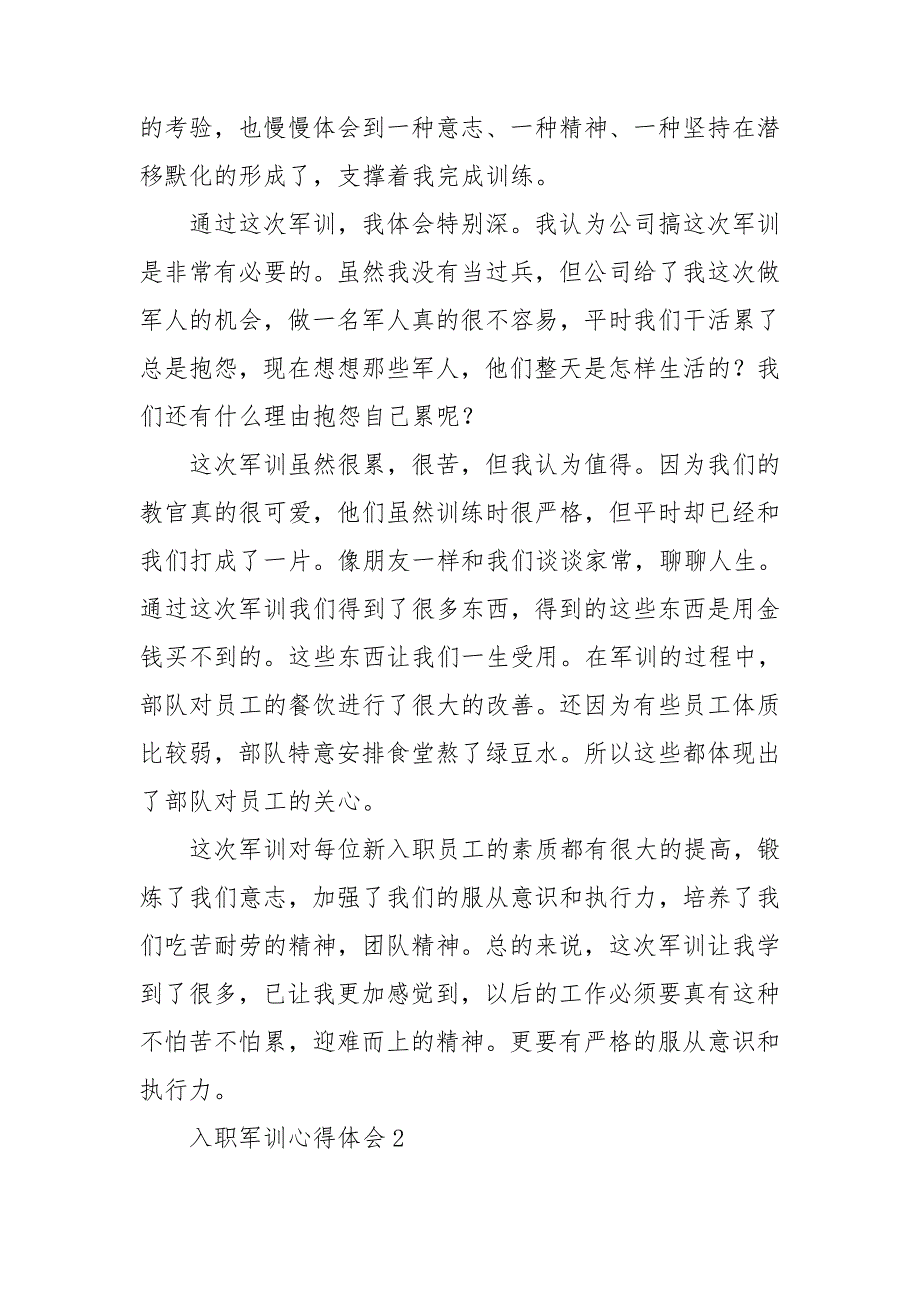 的考验，也慢慢体会到一种意志、一种精神、一种坚持在潜
移默化的形成了，支撑着我完成训练。
通过这次军训，我体会特别深。我认为公司搞这次军训
是非常有必要的。虽然我没有当过兵，但公司给了我这次做
军人的机会，做一名军人真的很不容易，平时我们干活累了
总是抱怨，现在想想那些军人，他们整天是怎样生活的？我
们还有什么理由抱怨自己累呢？
这次军训虽然很累，很苦，但我认为值得。因为我们的
教官真的很可爱，他们虽然训练时很严格，但平时却已经和
我们打成了一片。像朋友一样和我们谈谈家常，聊聊人生。
通过这次军训我们得到了很多东西，得到的这些东西是用金
钱买不到的。这些东西让我们一生受用。在军训的过程中，
部队对员工的餐饮进行了很大的改善。还因为有些员工体质
比较弱，部队特意安排食堂熬了绿豆水。所以这些都体现出
了部队对员工的关心。
这次军训对每位新入职员工的素质都有很大的提高，锻
炼了我们意志，加强了我们的服从意识和执行力，培养了我
们吃苦耐劳的精神，团队精神。总的来说，这次军训让我学
到了很多，已让我更加感觉到，以后的工作必须要真有这种
不怕苦不怕累，迎难而上的精神。更要有严格的服从意识和
执行力。
入职军训心得体会2